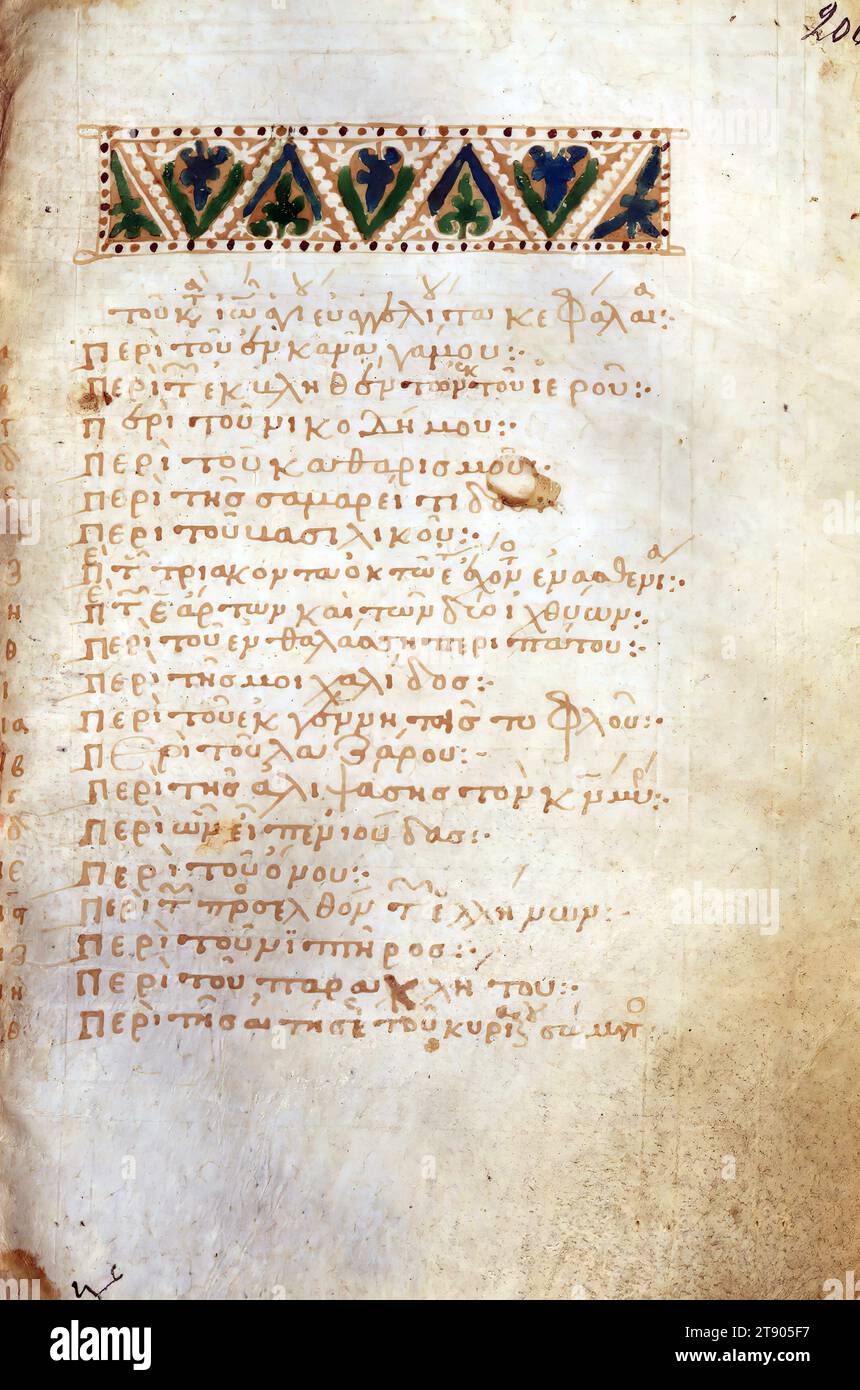 206
τοῦ κτ ἰω ἁγ εὐαγγελίστου κεφάλαι:
Περὶ τοῦ ἐν κανᾶ γάμου:
Περὶ τ ἐκβληθέντων ἐκ τοῦ ἱεροῦ:
Περὶ τοῦ νικοδήμου:
Περὶ τοῦ καθαρισμοῦ:
Περὶ τῆς σαμαρείτιδος
Περὶ τοῦ βασιλικοῦ:
Πε τ τριάκοντα ὀκτὼ ἔτ ἔχοντ ἐν ἀσθενεία:
Πε τ ε ἄρτων καὶ τῶν δύο ἰχθύων:
Περὶ τοῦ ἐν θαλάσση περιπάτου:
Περὶ τῆς μοιχαλίδος:
Περὶ τοῦ ἐκ γεννητῆς τυφλοῦ:
Περὶ τοῦ λαζάρου:
Περὶ τῆς ἀλιψάσης τὸν κν μύρ:
Περὶ ὧν εἶπεν ἰούδας:
Περὶ τοῦ ὄνου:
Περὶ τ προσελθόντ ἑλλήνων:
Περὶ τοῦ νϊπτῆρος:
Περὶ τοῦ παρακλήτου:
Περὶ τῆς αἰτήσε τοῦ κυριακοῦ σώματο
ζ
η
θ
ι
ια
ιβ
alamy
Image ID: 2T905F7
www.alamy.com